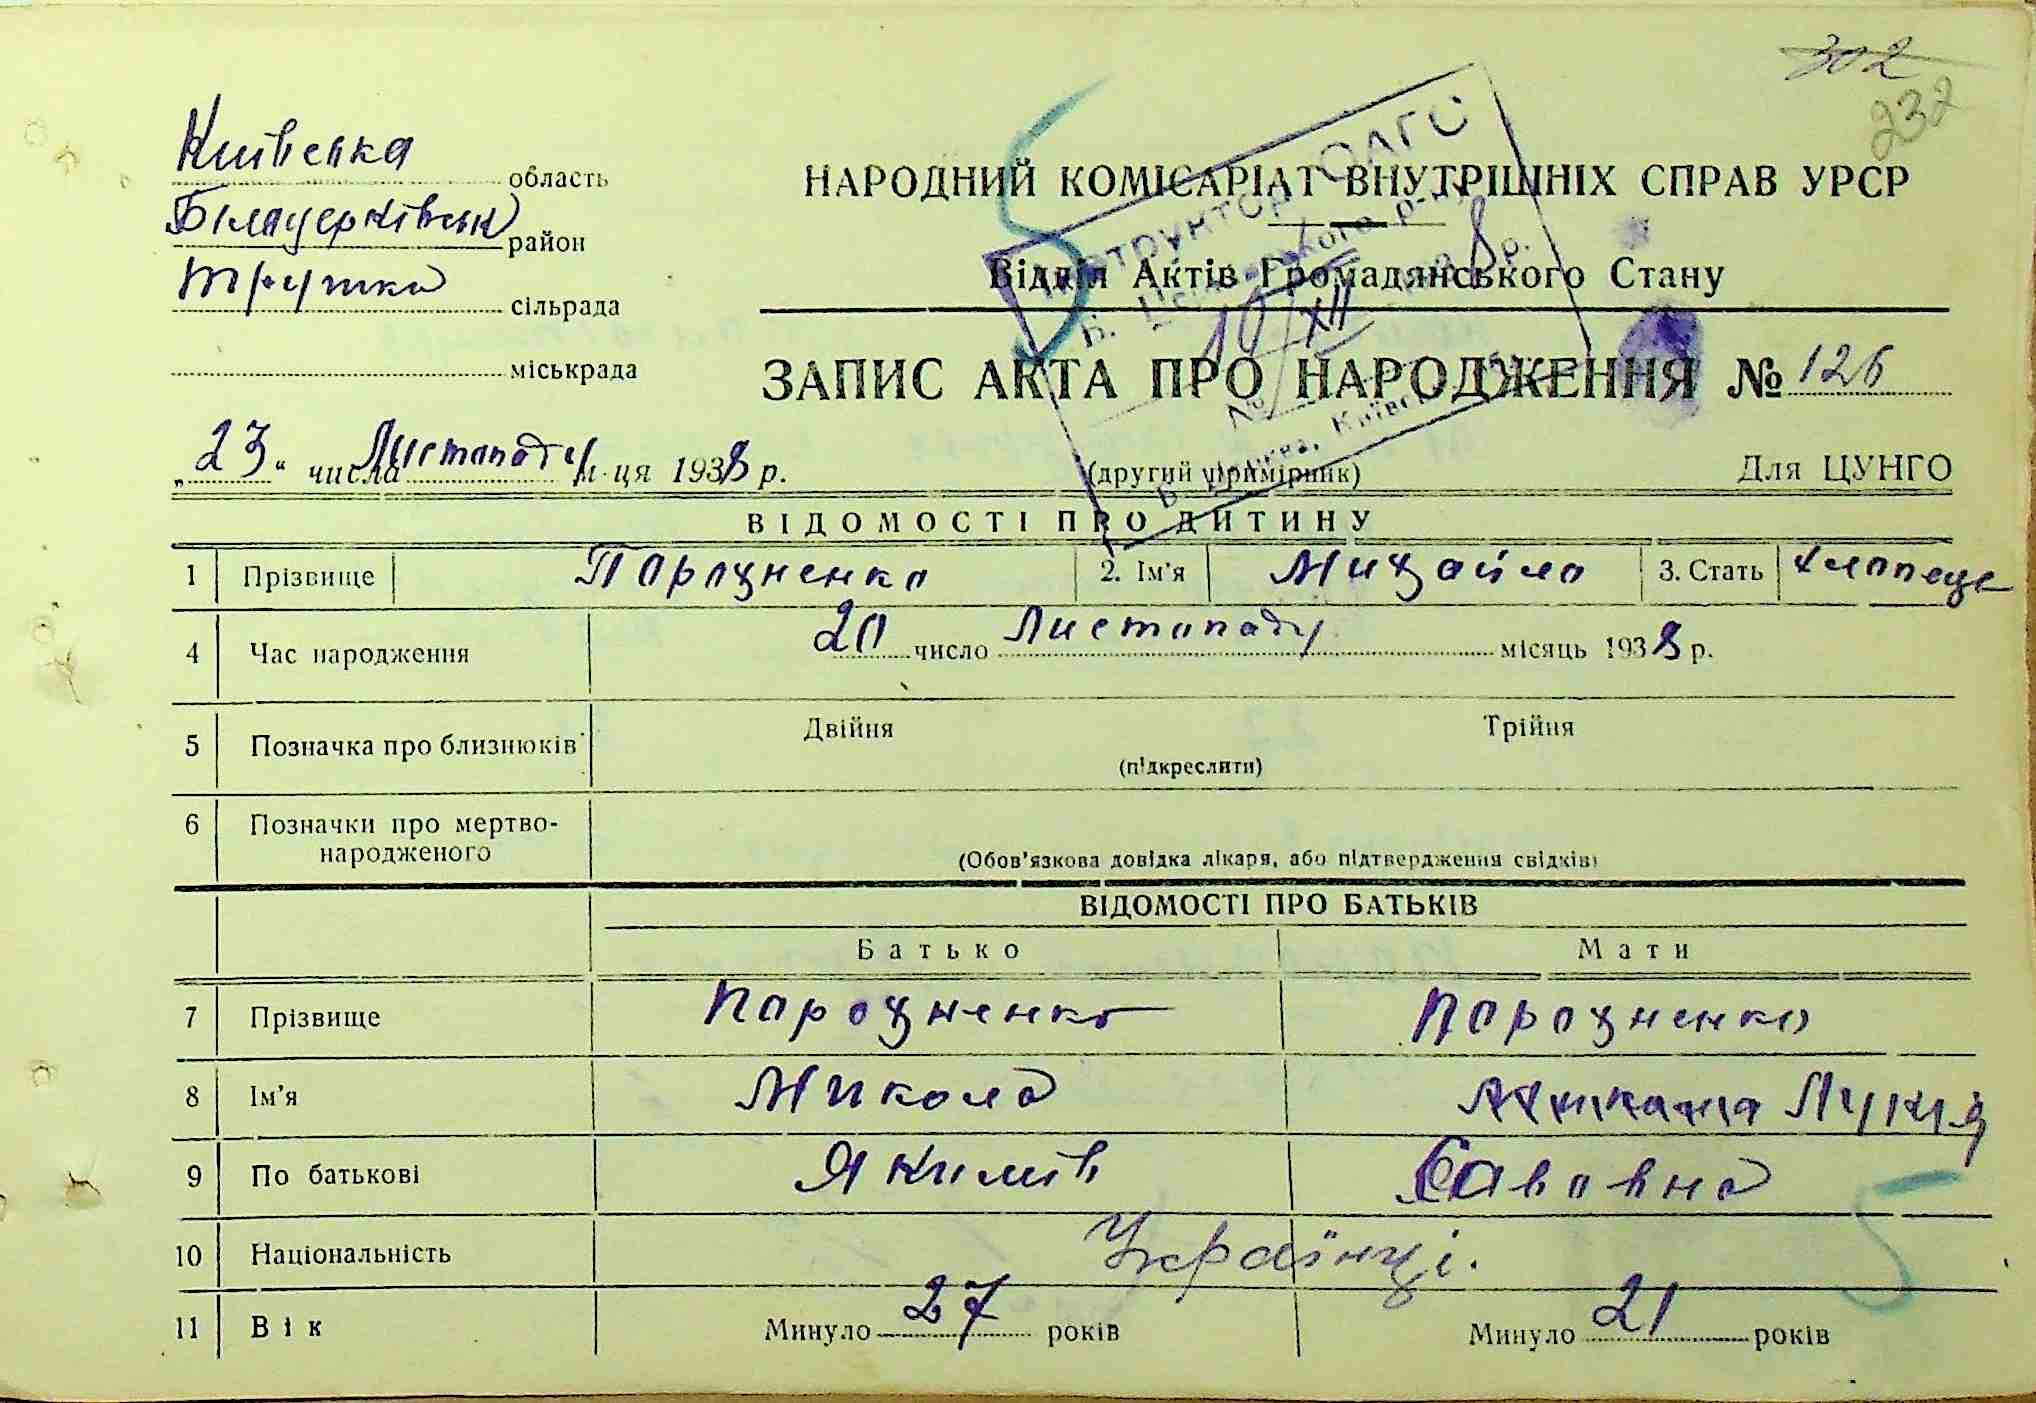 302
232
Київська область
Білоцерківськ район
НАРОДНИЙ КОМІСАРІАТ ВНУТРІШНІХ СПРАВ УРСР
Трушки сільрада
Відділ Актів Громадянського Стану
міськрада
ЗАПИС АКТА ПРО НАРОДЖЕННЯ № 126
„23“ числа Листопаду м-ця 1938 р.
(другий примірник)
Для ЦУНГО
Інструктор ОАГС
10/XII 1938 р.
ВІДОМОСТІ ПРО ДИТИНУ
1 Прізвище Парахненко 2. Ім'я Михайло 3. Стать хлопець
4 Час народження 20 число Листопаду місяць 1938 р.
5 Позначка про близнюків Двійня Трійня
(підкреслити)
6 Позначки про мертво-
народженого
(Обов'язкова довідка лікаря, або підтвердження свідків)
ВІДОМОСТІ ПРО БАТЬКІВ
Батько Мати
7 Прізвище Парахненко Парахненко
8 Ім'я Микола Лукія
9 По батькові Якимів Савовна
10 Національність Українці.
11 Вік Минуло 27 років Минуло 21 років
5